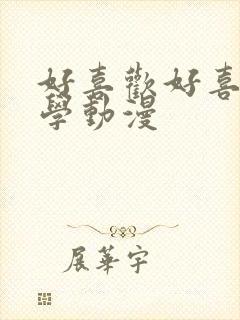 好喜歡好喜
學動漫
展華宇